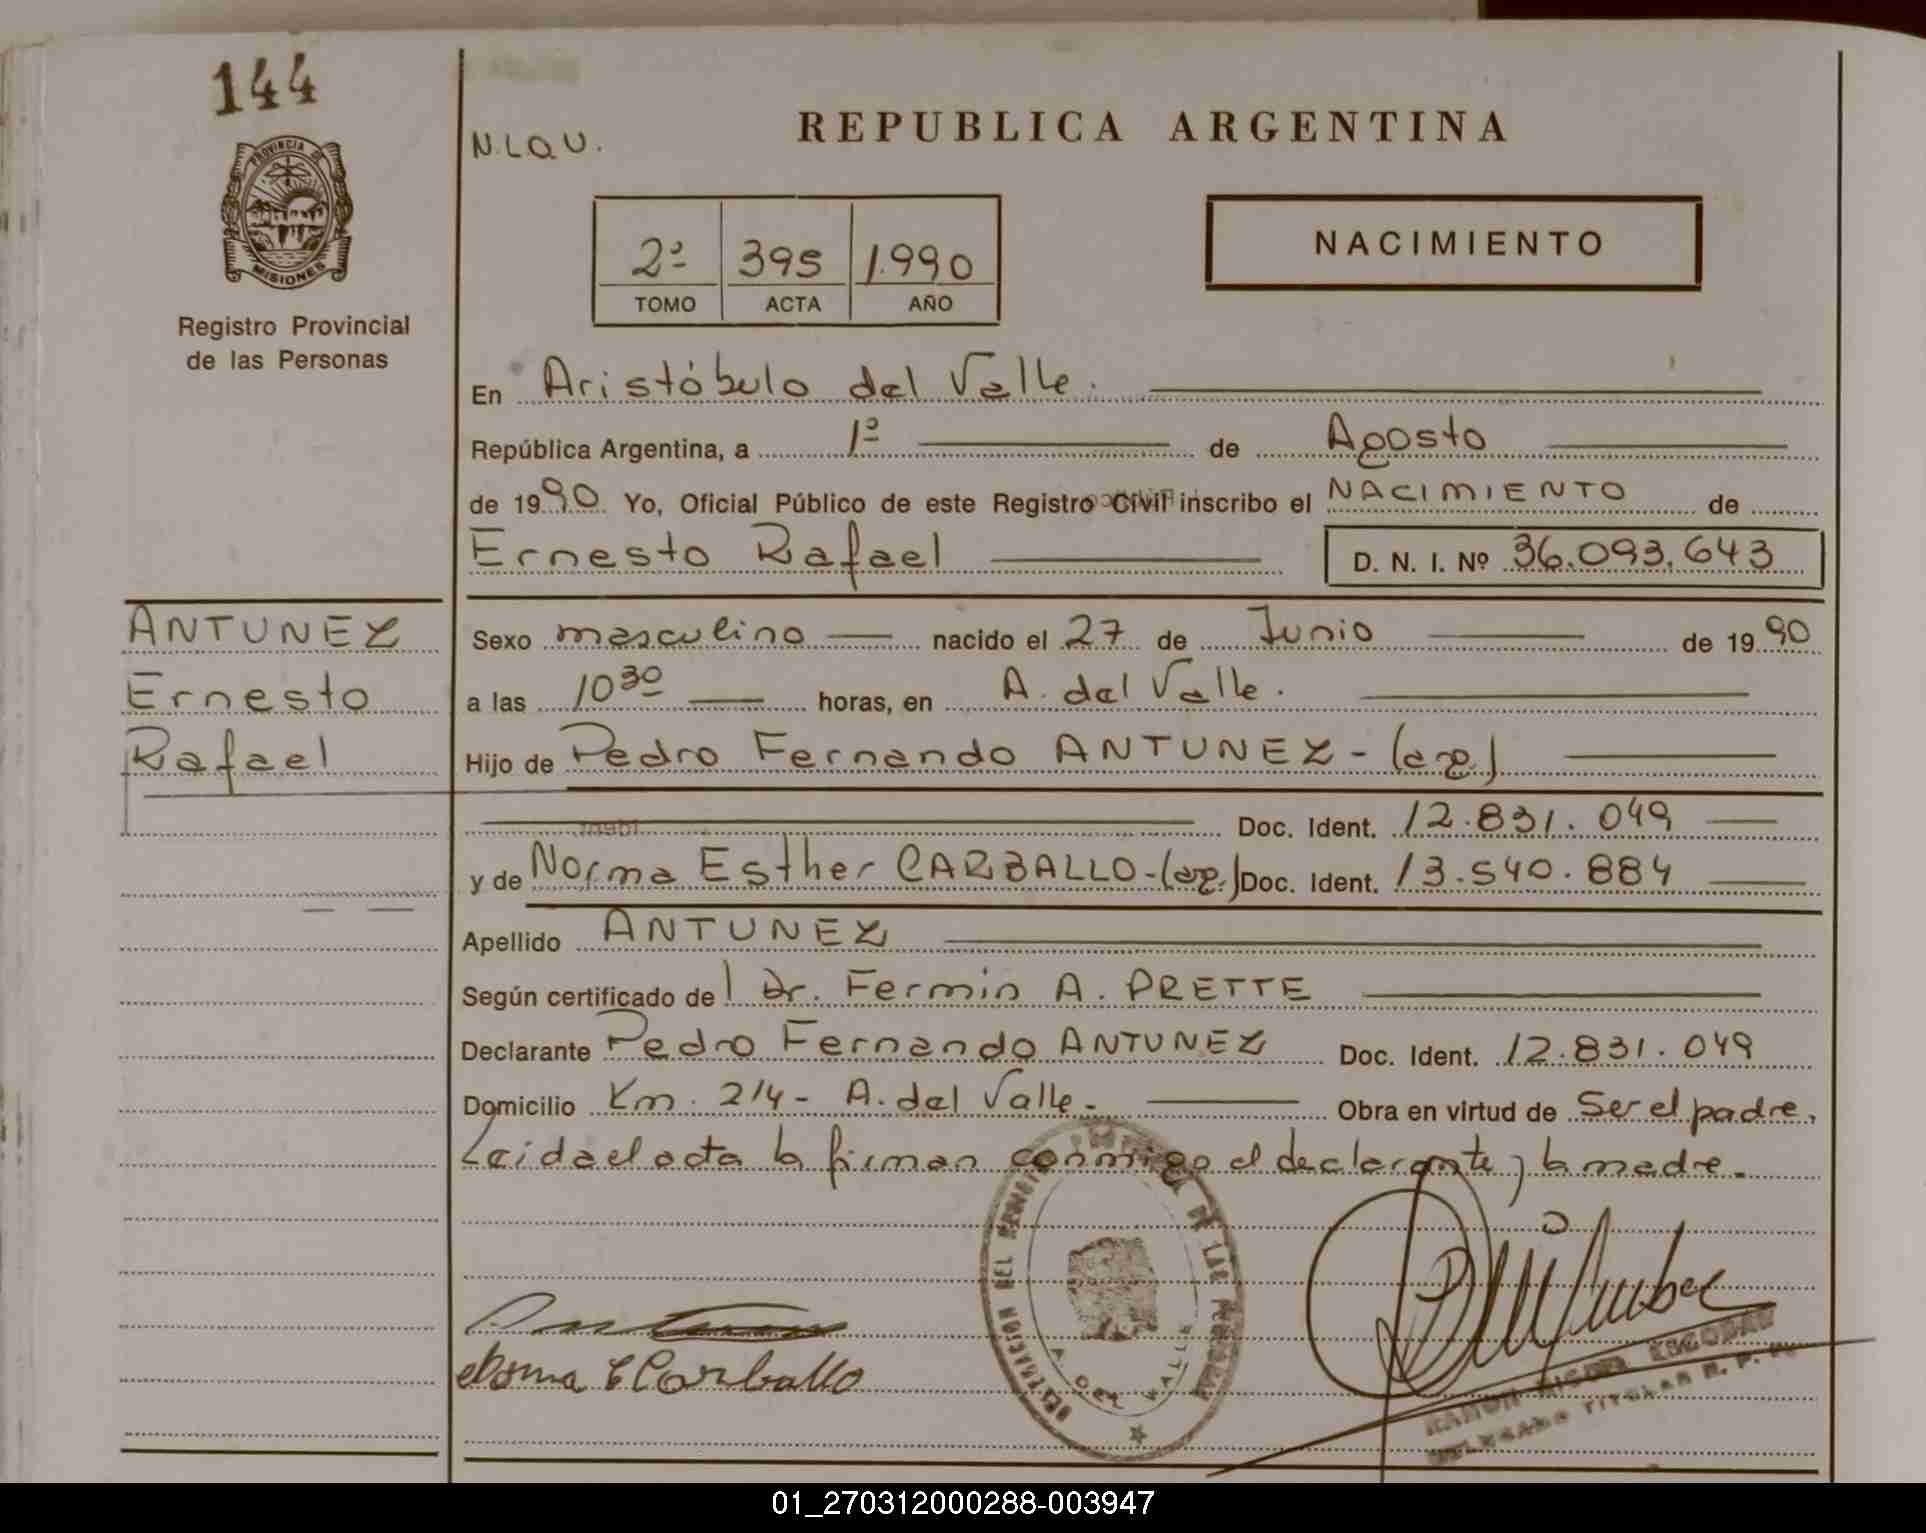 144
PROVINCIA DE
MISIONES
Registro Provincial
de las Personas
N.L.Q.U.
REPUBLICA ARGENTINA
2º 395 1.990
TOMO ACTA AÑO
NACIMIENTO
En Aristóbulo del Valle.
República Argentina, a 1º de Agosto
de 1990 Yo, Oficial Público de este Registro Civil inscribo el NACIMIENTO de
Ernesto Rafael D. N. I. Nº 36.093.643
ANTUNEZ
Ernesto
Rafael
Sexo masculino nacido el 27 de Junio de 1990
a las 10 30 horas, en A. del Valle.
Hijo de Pedro Fernando ANTUNEZ - (arg.)
Doc. Ident. 12.831.049
y de Norma Esther CARBALLO - (arg.) Doc. Ident. 13.540.884
Apellido ANTUNEZ
Según certificado del Dr. Fermin A. PRETTE
Declarante Pedro Fernando ANTUNEZ Doc. Ident. 12.831.049
Domicilio Km. 214 - A. del Valle - Obra en virtud de Ser el padre.
Leida el acta la firman conmigo el declarante y la madre.
DEL REGISTRO DE LAS PERSONAS
A. DEL VALLE
Norma E Carballo
RAMON MIGUEL ESCOBAR
DELEGADO TITULAR R. P.
01_270312000288-003947